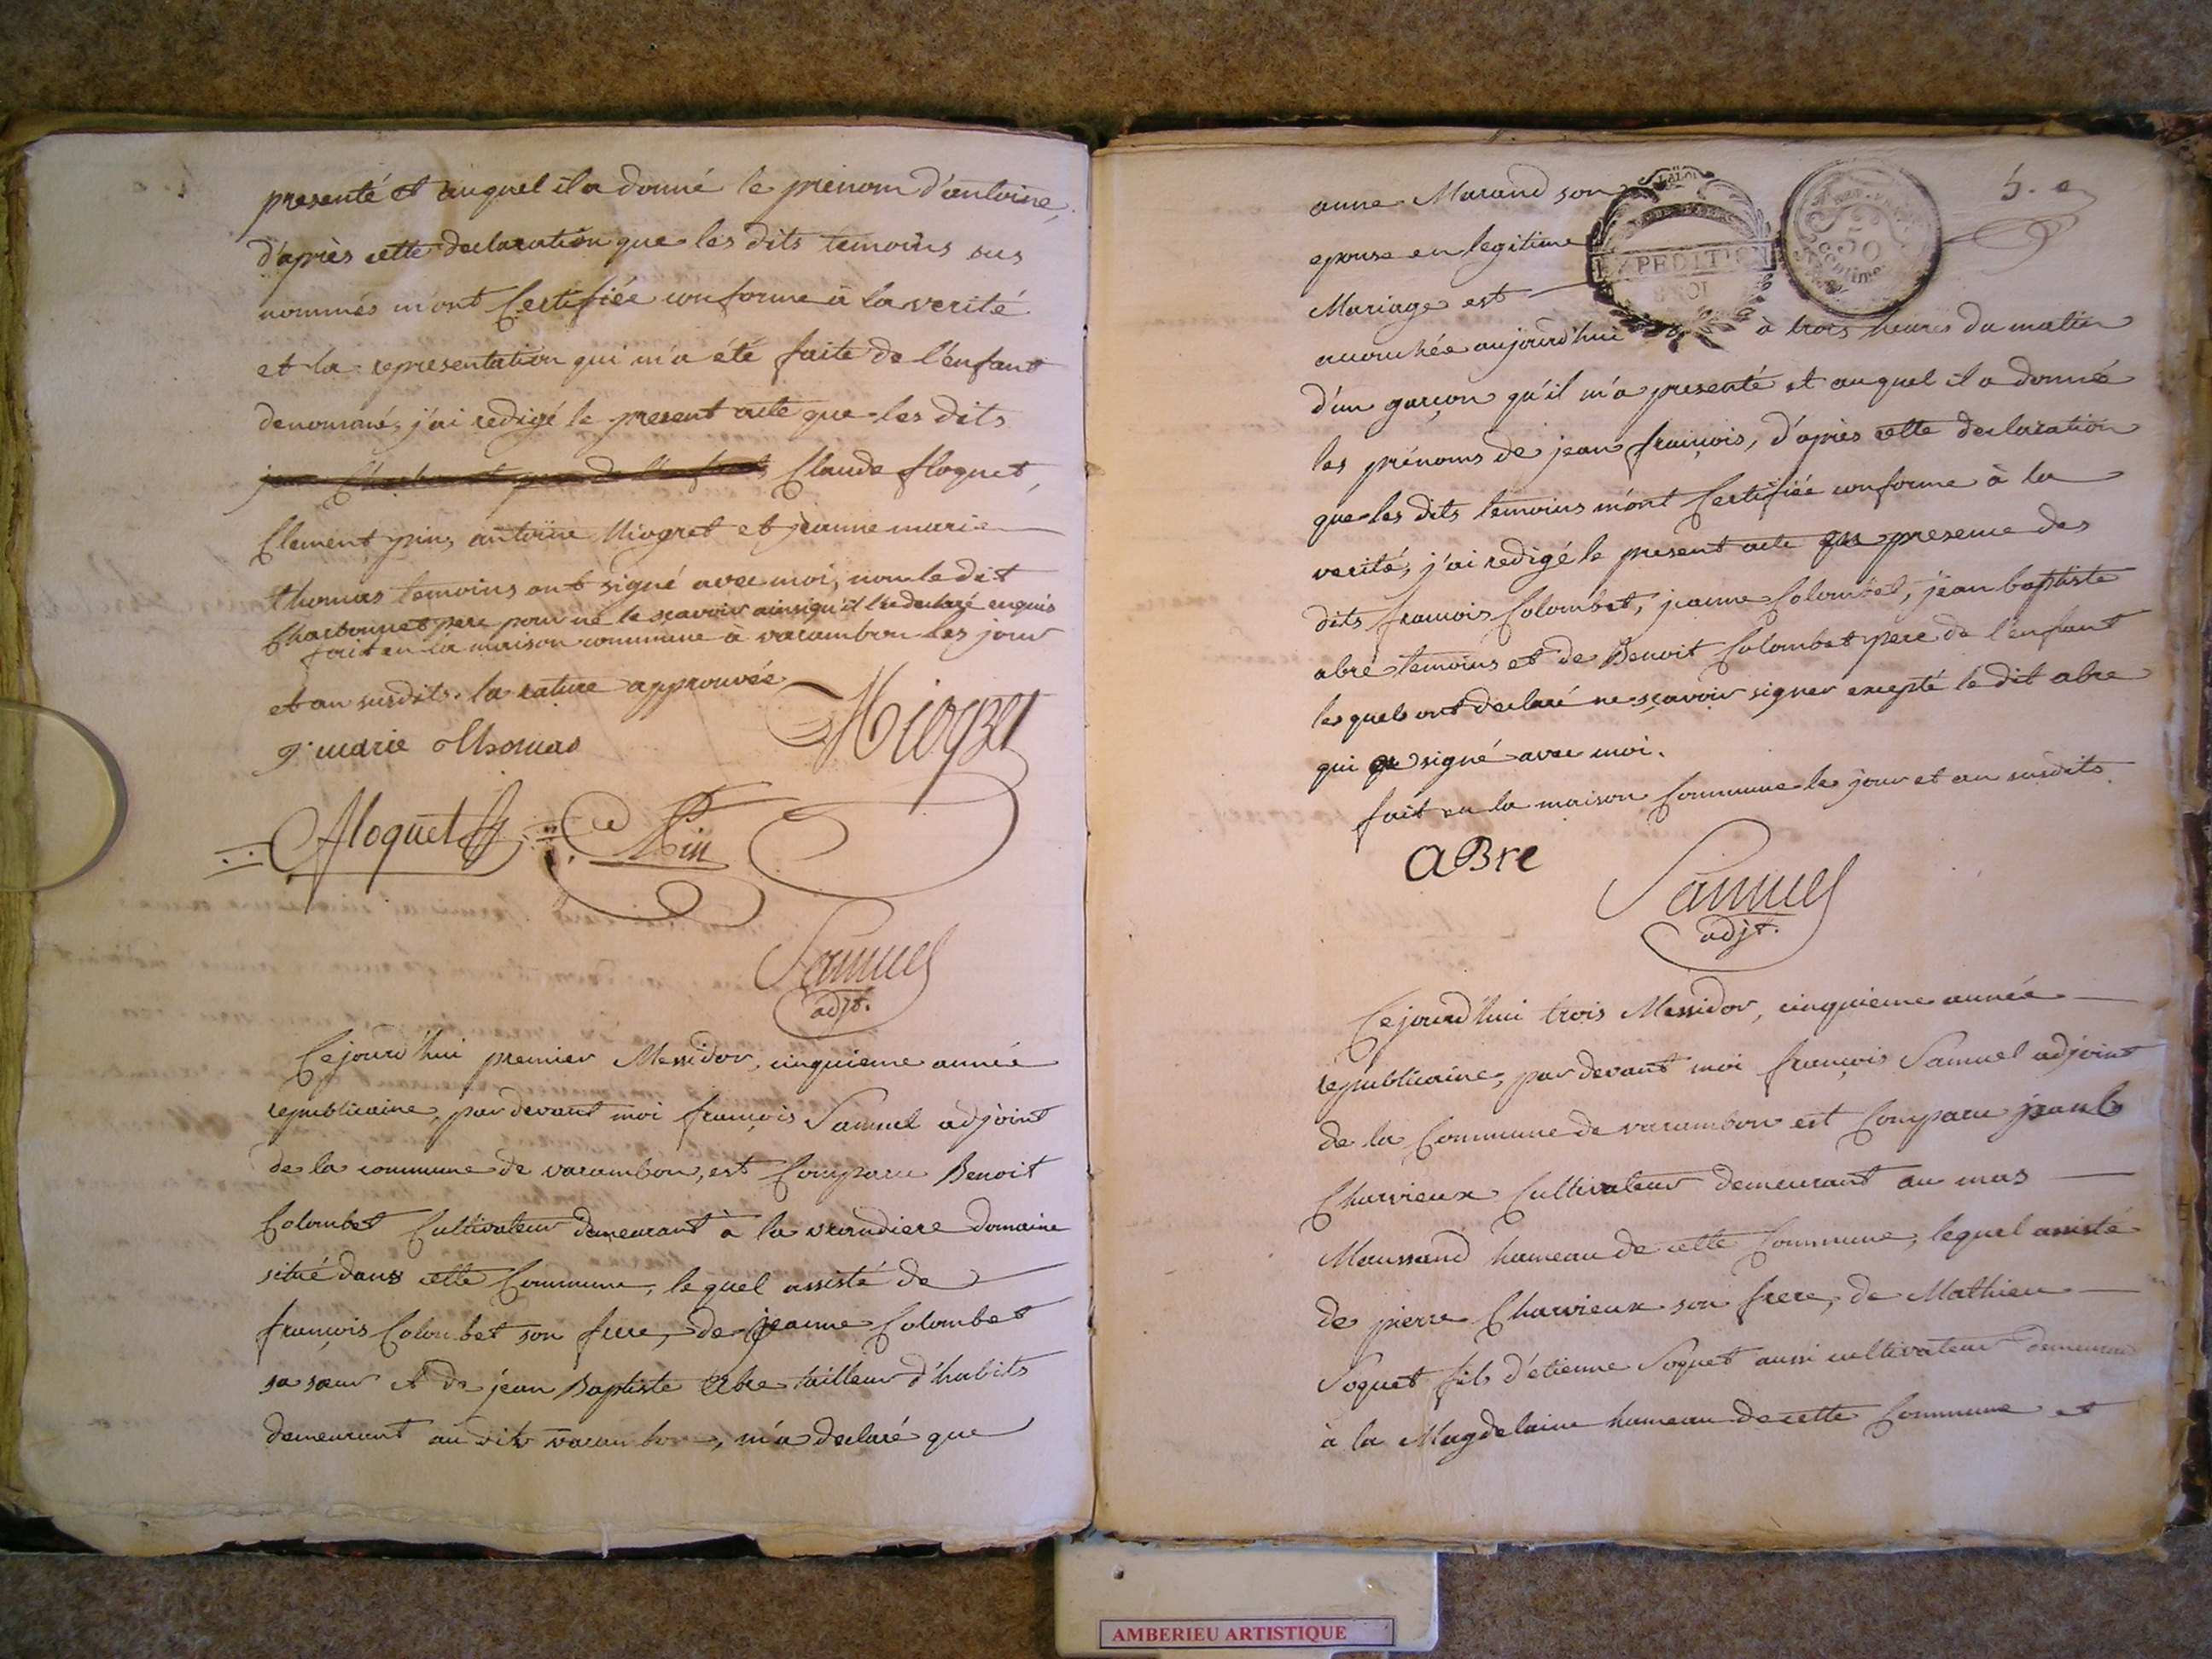 presenté et auquel il a donné le prenom d'antoine,
d'après cette declaration que les dits temoins sus
nommés m'ont Certifiée conforme à la verité
et la representation qui m'a été faite de l'enfant
denommé, j'ai redigé le present acte que les dits
Claude floquet,
Clement pin, antoine Miogret et jeanne marie
thomas temoins ont signé avec moi, non le dit
Charbonnet pere pour ne le scavoir ainsi qu'il l'a declaré enquis
fait en la maison commune à varambon les jour
et an susdits. la rature approuvée
j. marie thomas
Miogret
floquet
Pin
Samuel
adjt.
Cejourd'hui premier Messidor, cinquieme année
republicaine, par devant moi françois Samuel adjoint
de la commune de varambon, est Comparu Benoit
Colombet Cultivateur demeurant à la domaine
situé dans cette Commune, lequel assisté de
françois Colombet son frere, de jeanne Colombet
sa sœur et de jean Baptiste Abre tailleur d'habits
demeurant au dit varambon, m'a declaré que
5. e
anne Marand son
epouse en legitime
Mariage est
EXPEDITION
REP. FRA.
50
Centimes
accouchée aujourd'hui à trois heures du matin
d'un garçon qu'il m'a presenté et auquel il a donné
les prénoms de jean françois, d'apres cette declaration
que les dits temoins m'ont Certifiée conforme à la
verité, j'ai redigé le present acte en presence des
dits francois Colombet, jeanne Colombet, jean baptiste
abre temoins et de Benoit Colombet pere de l'enfant
lesquels ont declaré ne scavoir signer excepté le dit abre
qui a signé avec moi.
fait en la maison Commune les jour et an susdits.
aBre
Samuel
adjt.
Cejourd'hui trois Messidor, cinquieme année
republicaine, par devant moi françois Samuel adjoint
de la Commune de varambon est Comparu
Charvieux Cultivateur demeurant au mas
Maussand hameau de cette Commune, lequel assisté
de pierre Charvieux son frere, de Mathieu
Soquet fils d'etienne Soquet aussi cultivateur demeurant
à la Magdelaine hameau de cette Commune et
AMBERIEU ARTISTIQUE